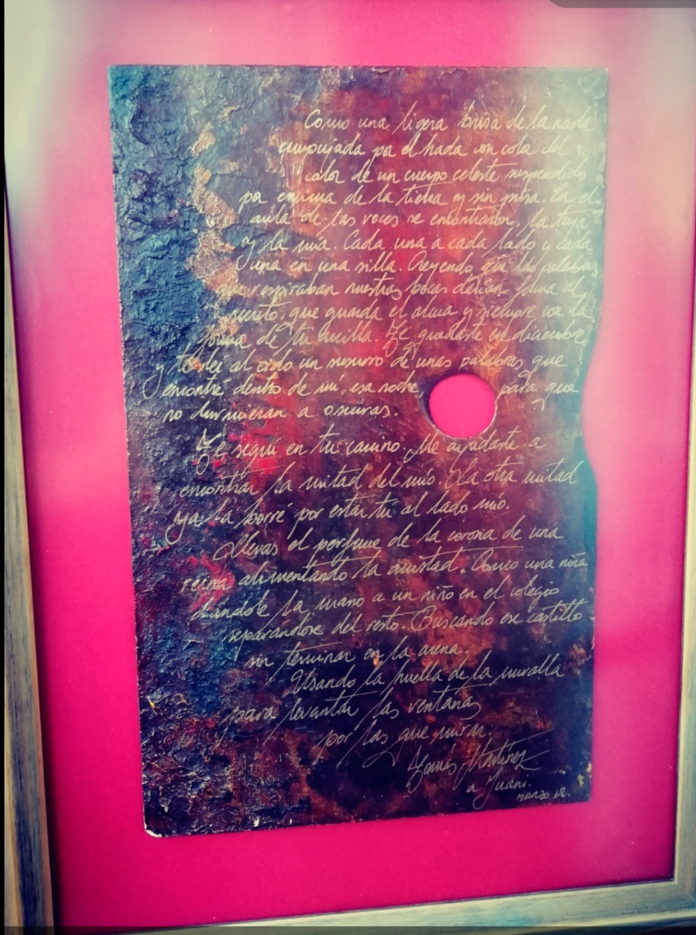 Como una ligera brisa de la nada
empujada por el hada con cola del
calor de un cuerpo celeste suspendido
por encima de la tierra y sin prisa. En el
aula de las voces se encontraron, la tuya
y la mía. Cada una a cada lado y cada
una en una silla. Creyendo que las palabras
que respiraban nuestras bocas darían forma al
secreto, que guarda el alma y siempre va la
forma de tu anilla. Te quedaste en diciembre
y te leí al oído un susurro de unas palabras, que
encontré dentro de mí esa noche para que
no durmieran a oscuras.
Te seguí en tu camino. Me ayudaste a
encontrar la mitad del mío. La otra mitad
ya la borré por estar tú al lado mío.
Llevas el perfume de la corona de una
reina alimentando la amistad. Como una niña
dándole la mano a un niño en el colegio
separándose del resto. Buscando ese castillo
sin terminar en la arena.
Usando la huella de la muralla
para levantar las ventanas
por las que mirar.
Tomás Martínez
a Juani.
marzo 18.